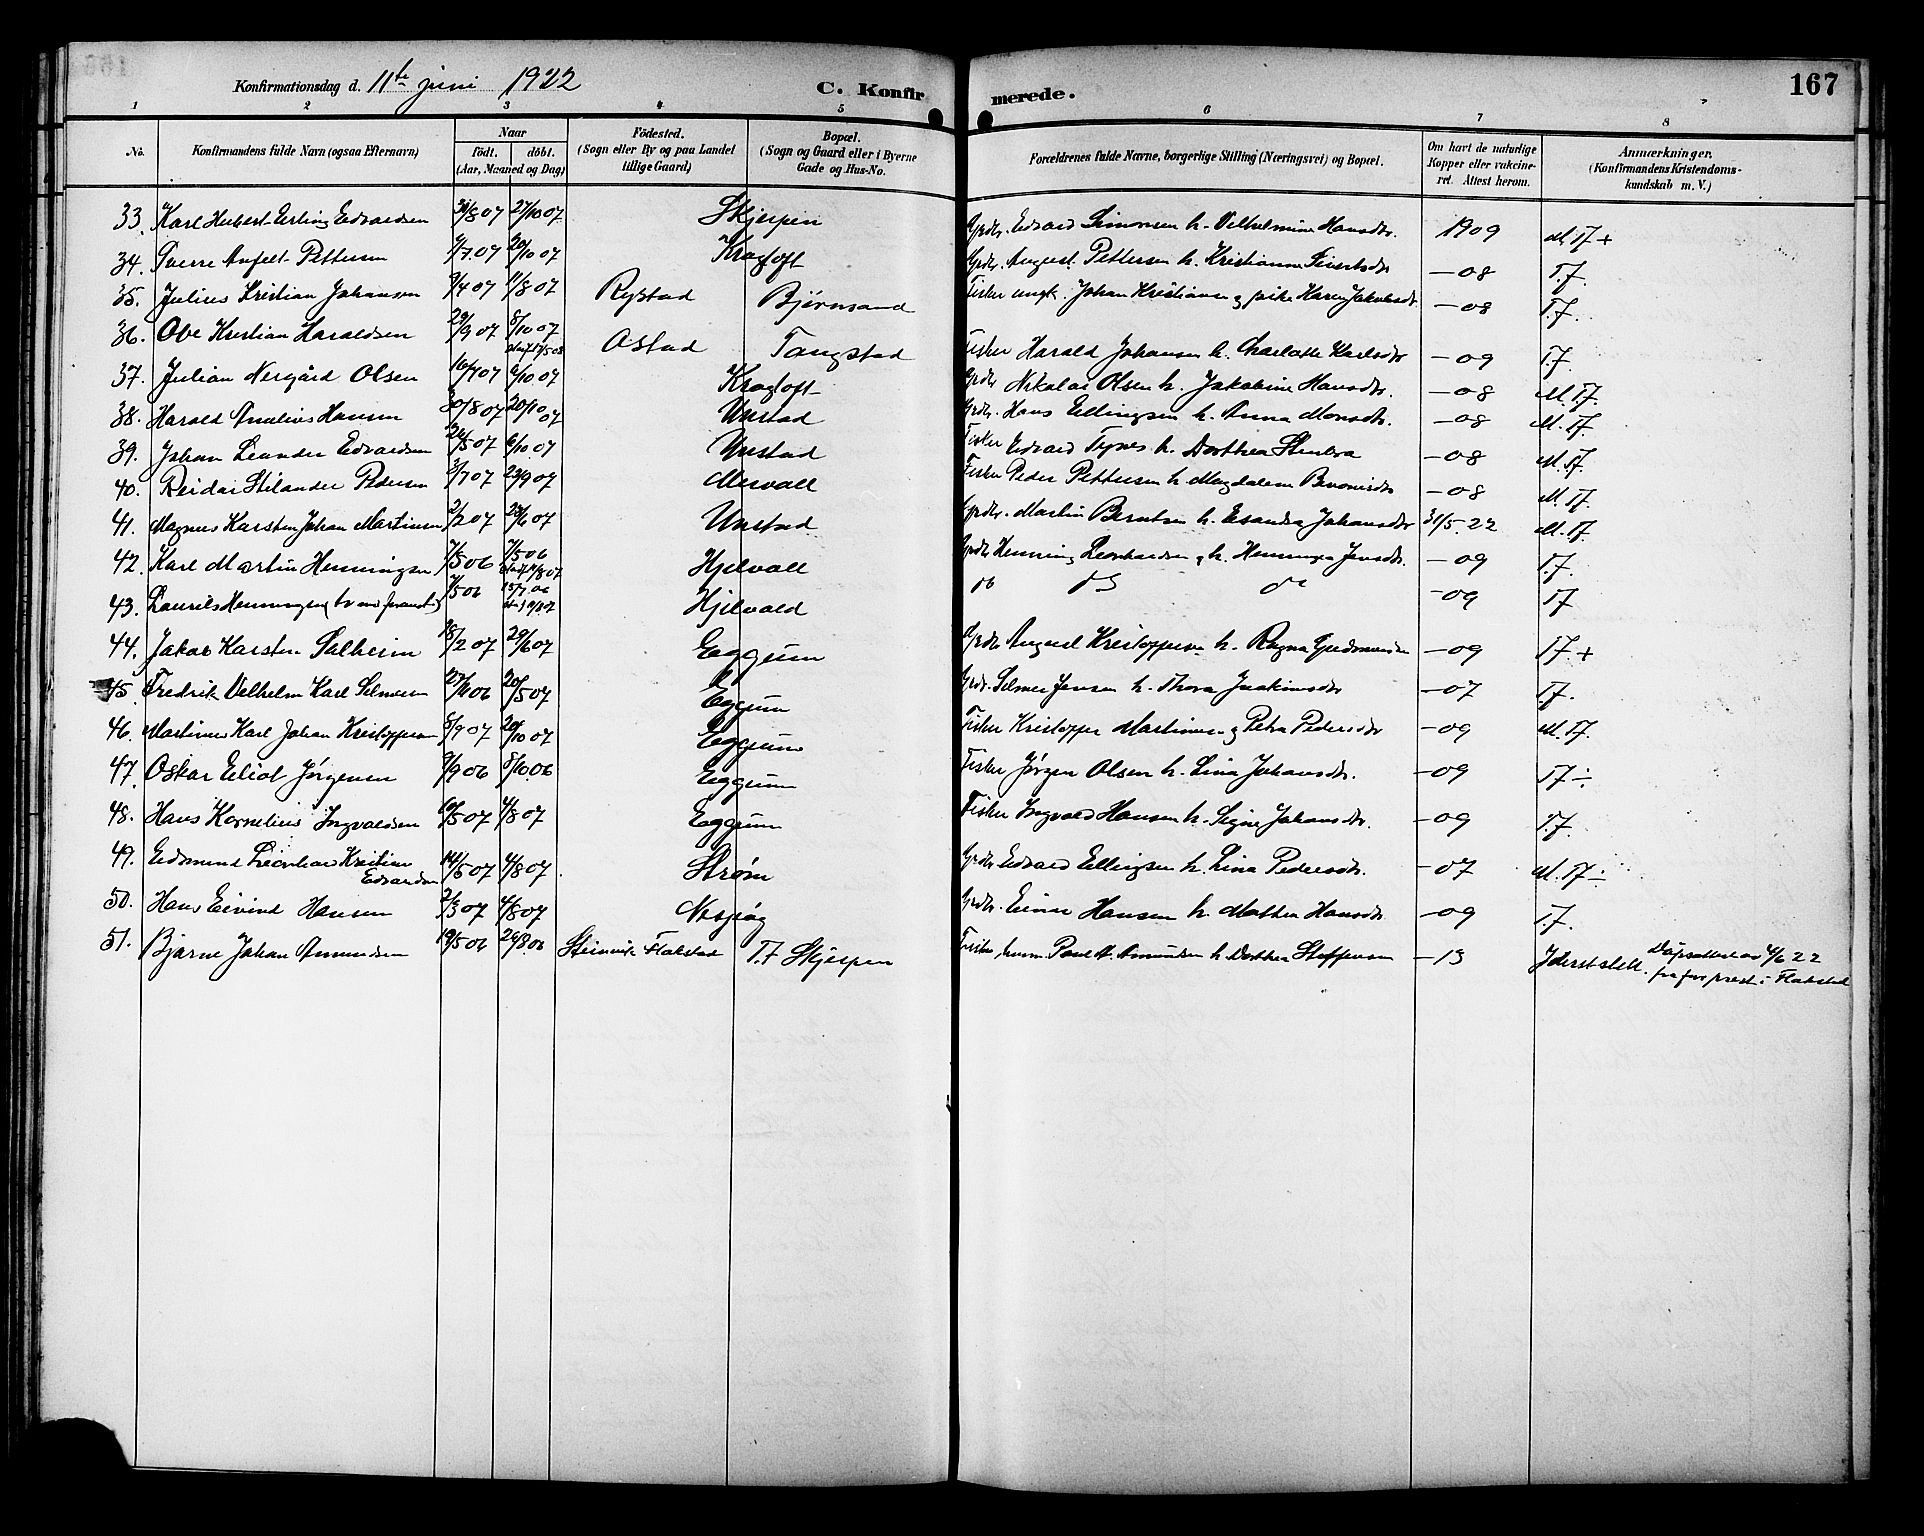 Konfirmationsdag d. 11te juni 1922 C. Konfirmerede. 167
1 2 3 4 5 6 7 8
No. Konfirmandens fulde Navn (ogsaa Efternavn) Naar födt. döbt. (Aar, Maaned og Dag) Födested. (Sogn eller By og paa Landet tillige Gaard) Bopæl. (Sogn og Gaard eller i Byerne Gade og Hus-No. Forældrenes fulde Navne, borgerlige Stilling (Næringsvei) og Bopæl. Om havt de naturlige Kopper eller vakcineret. Attest herom. Anmærkninger. (Konfirmandens Kristendomskundskab m. V.)
33. Karl Hubert Erling Edvardsen 31/8 07 27/10 07 Skjerpen Grdr. Edvard Simonsen h. Vilhelmine Hansdtr. 1909 M. T.f +
34. Sverre Anfelt Pettersen 9/7 07 20/10 07 Kragtoft Grdr. August Pettersen h. Kristianna -08 T.f.
35. Julius Kristian Johansen 9/4 07 11/8 07 Rystad Bjørnsand Fisker ungk. Johan Kristiansen og pike Karen Jakobsdt. -08 T.f.
36. Ove Kristian Haraldsen 29/9 07 8/10 07 Østad Tangstad Fisker Harald Johansen h. Charlotte Karlsdtr -09 T.f.
37. Julian Nergård Olsen 16/7 07 6/10 07 Kragtoft Grdr Nikolai Olsen h. Jakobine Hansdtr. -08 M. T.f.
38. Harald Amelius Hansen 30/8 07 20/10 07 Unstad Grdr. Hans Ellingsen h. Anna Monsdtr. -08 M. T.f.
39. Johan Leander Edvardsen 26/5 07 6/10 07 Unstad Fisker Edvard Tynes h. Dorthea -08 M. T.f.
40. Reidar Stilander Pedersen 3/7 07 29/9 07 Mervoll Fisker Peder Pettersen h. Magdalena -08 M. T.f.
41. Magnus Karsten Johan Martinsen 2/2 07 23/6 07 Unstad Grdr. Martin Berntsen h. Johansdtr 31/5.22 M. T.f.
42. Karl Martin Henningsen 7/5 06 7/5 06 Hjelvoll Grdr. Henning Leonhardsen og h. Jensdtr. -09 T.f.
43. Laurits Henningsen 7/5 06 15/7 06 Hjelvold do do do -09 T.f
44. Jakob Karsten Solheim 18/2 07 29/6 07 Eggum Grdr August Kristoffersen h. Ragna -09 T.f +
45. Fredrik Vilhelm Karl Selmersen 27/6 06 20/5 07 Eggum Grdr. Selmer Jensen h. Thora Joakimsdtr -07 T.f.
46. Martinus Karl Johan Kristoffersen 8/9 07 20/10 07 Eggum Fisker Kristoffer Martinusen og Petra Pedersdtr -09 M. T.f.
47. Oskar Eliot Jørgensen 9/9 06 8/10.06 Eggum Fisker Jørgen Olsen h. Lina Johansdtr. -09 T.f ÷
48. Hans Kornelius Ingvaldsen 10/5 07 4/8 07 Eggum Fisker Ingvald Hansen h. Signe Johansdtr. -09 T.f.
49. Edmund Leonhard Kristian Edvardsen 14/5 07 4/8 07 Strøm Grdr. Edvard Ellingsen h. Lina Pedersdtr. -07 M. T.f ÷
50. Hans Eivind Hansen 2/3 07 4/8 07 Grdr. Einar Hansen h. Mathea Hansdtr -09 T.f.
51. Bjarne Johan Amundsen 19/5 06 26/8.06 Steinvik Flakstad T.f Skjerpen Fisker Paul A. Amundsen h. Dorthea Steffensen -13 Yderst slett. Dåpsattest av 4/6 22
fra sogneprest i Flakstad